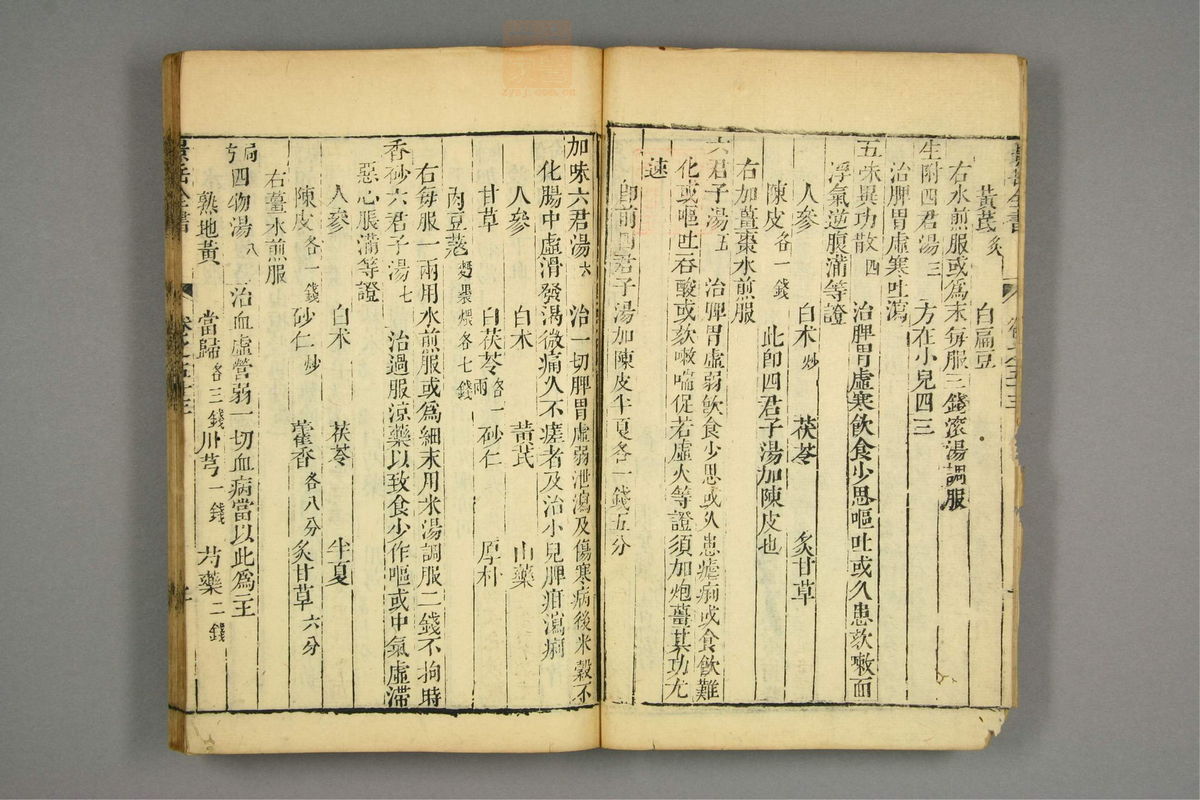 黃芪炙 白扁豆
右水煎服或爲末每服三錢滚湯調服
生附四君湯三 方在小兒四三
治脾胃虛寒吐瀉
五味異功散四 治脾胃虛寒飲食少思嘔吐或久患欬嗽面
浮氣逆腹滿等證
人參 白术炒 茯苓 炙甘草
陳皮各一錢 此卽四君子湯加陳皮也
右加薑棗水煎服
六君子湯五 治脾胃虛弱飲食少思或久患瘧痢或食飲難
化或嘔吐吞酸或欬嗽喘促若虛火等證須加炮薑其功尤
速
卽前四君子湯加陳皮半夏各一錢五分
加味六君湯六 治一切脾胃虛弱泄瀉及傷寒病後米穀不
化腸中虛滑發渴微痛久不瘥者及治小兒脾疳瀉痢
人參 白术 黃芪 山藥
甘草 白茯苓各一兩 砂仁 厚朴
肉豆蔲麪裹煨各七錢
右每服一兩用水煎服或爲細末用米湯調服二錢不拘時
香砂六君子湯七 治過服涼藥以致食少作嘔或中氣虛滯
惡心脹滿等證
人參 白术 茯苓 半夏
陳皮各一錢 砂仁炒 藿香各八分 炙甘草六分
右薑水煎服
局方四物湯八 治血虛營弱一切血病當以此爲主
熟地黃 當歸各三錢 川芎一錢 芍藥二錢
景岳全書 卷之五十三